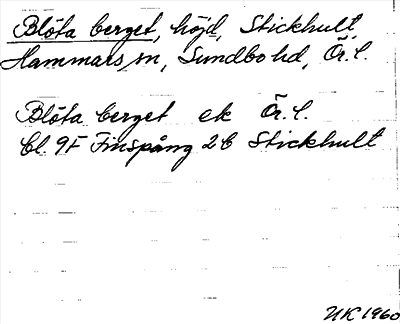 Blöta berget, höjd, Stickhult,
Hammars sn, Sundbo hd, Ör. l.
Blöta berget ek Ör. l.
bl. 9F Finspång 2b Stickhult
NK 1960